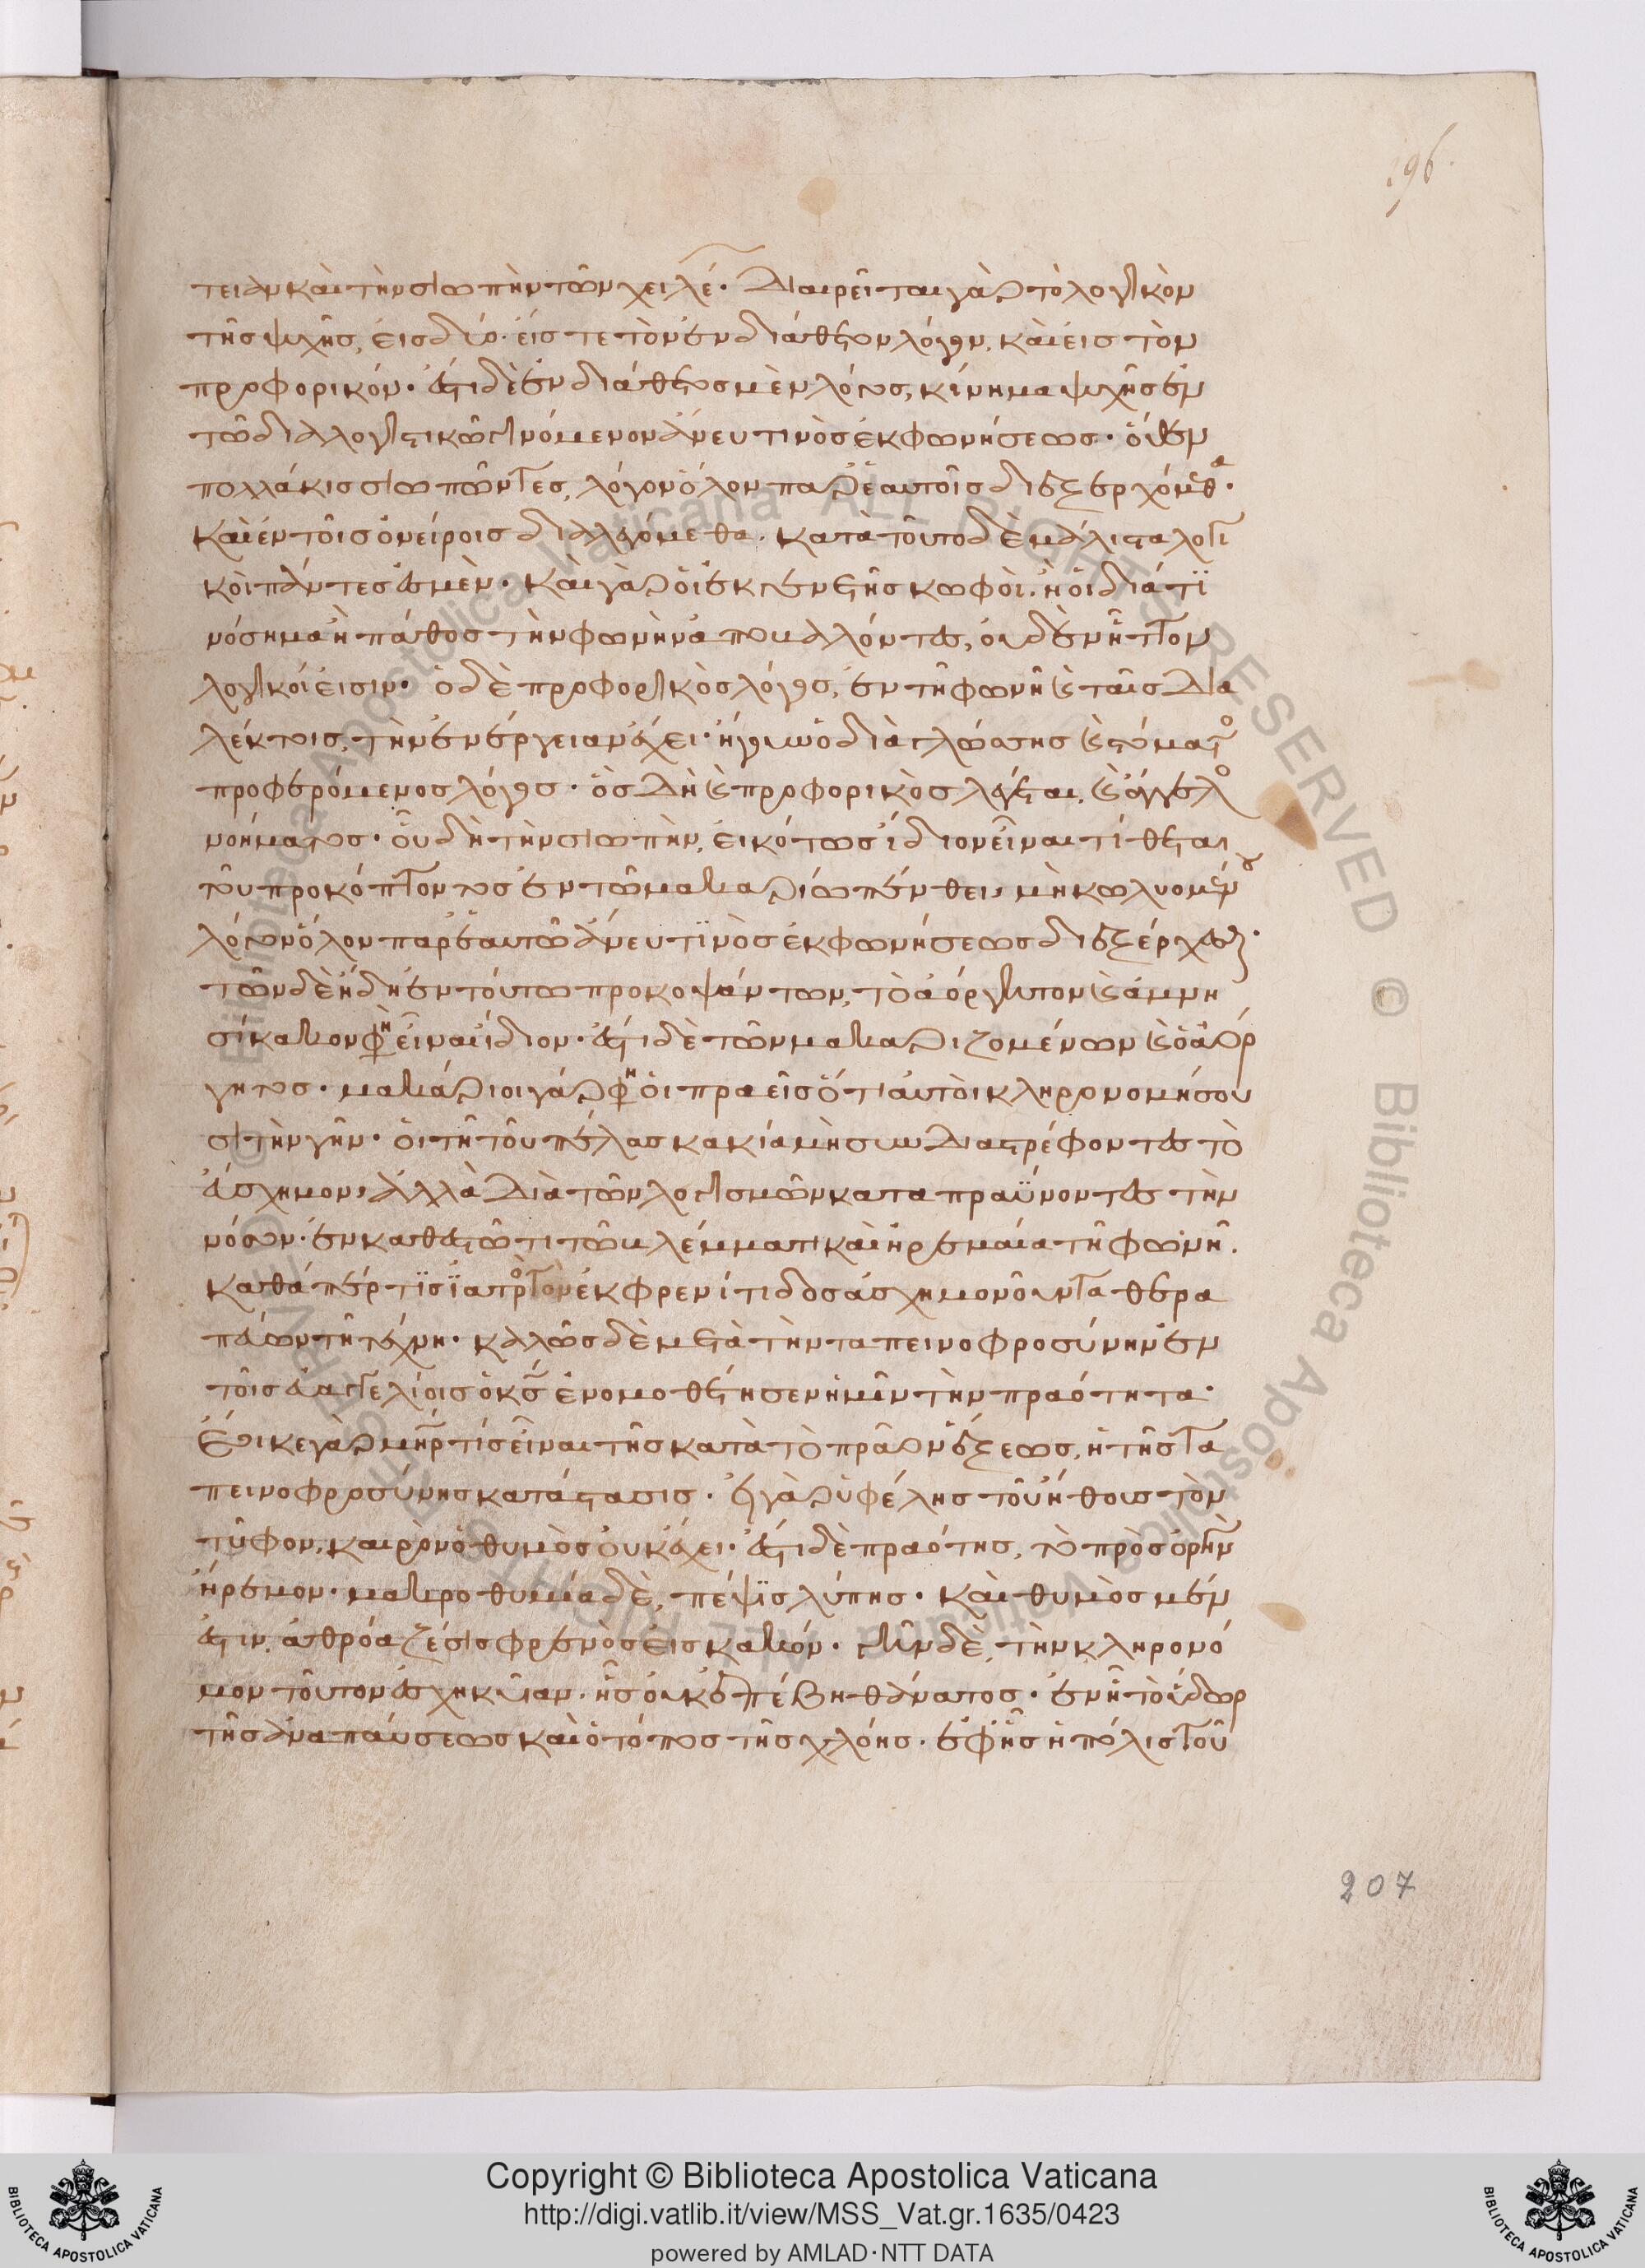 196.
τειαν καὶ τὴν σιωπὴν τῶν χειλέ. Διαιρεῖται γὰρ τὸ λογικὸν
τῆς ψυχῆς, εἰς δύο. εἴς τε τὸν ἐνδιάθετον λόγον, καὶ εἰς τὸν
προφορικόν. ἔστι δὲ ἐνδιάθετος μὲν λόγος, κίνημα ψυχῆς ἐν
τῶ διαλογιστικῶ γινόμενον ἄνευ τινὸς ἐκφωνήσεως. ὅθεν
πολλάκις σιωπῶντες, λόγον ὅλον παρ' ἑαυτοῖς διεξερχόμεθα.
καὶ ἐν τοῖς ὀνείροις διαλεγόμεθα. κατὰ τοῦτο δὲ μάλιστα λογι
κοὶ πάντες ἐσμὲν. καὶ γὰρ οἱ ἐκ γενετῆς κωφοὶ. ἢ οἱ διά τι
νόσημα ἢ πάθος τὴν φωνὴν ἀποβαλόντες, οὐδὲν ἧττον
λογικοί εἰσιν. ὁ δὲ προφορικὸς λόγος, ἐν τῆ φωνῆ καὶ ταῖς δια
λέκτοις, τὴν ἐνέργειαν ἔχει. ἤγουν ὁ διὰ γλώσσης καὶ στόματος
προφερόμενος λόγος. ὃς δὴ καὶ προφορικὸς λέγεται, καὶ ἄγγελος
νοήματος. οὗ δὴ τὴν σιωπὴν, εἰκότως ἴδιον εἶναι τίθεται
τοῦ προκόπτοντος ἐν τῶ μακαρίω πένθει, μὴ κωλυομένου
λόγον ὅλον παρ' ἑαυτῶ ἄνευ τινὸς ἐκφωνήσεως διεξέρχεσθαι.
τῶν δὲ ἤδη ἐν τούτω προκοψάντων, τὸ ἀόργητον καὶ ἀμνη
σίκακον φη εἶναι ἴδιον. ἔστι δὲ τῶν μακαριζομένων καὶ ὁ ἀόρ
γητος. μακάριοι γάρ φη οἱ πραεῖς ὅτι αὐτοὶ κληρονομήσου
σι τὴν γῆν. οἱ τῆ τοῦ πέλας κακία μὴ συνδιαστρέφοντες τὸ
ἄσχημον, ἀλλὰ διὰ τῶν λογισμῶν καταπραΰνοντες τὴν
νόσον. ἐν καθεστῶτι τῶ βλέμματι καὶ ἠρεμαία τῆ φωνῆ.
καθάπερ τις ἰατρὸς τὸν ἐκ φρενίτιδος ἀσχημονοῦντα θερα
πεύων τῆ τέχνη. καλῶς δὲ μετὰ τὴν ταπεινοφροσύνην ἐν
τοῖς εὐαγγελίοις ὁ κς ἐνομοθέτησεν ἡμῖν τὴν πραότητα.
ἔοικε γὰρ μηρ τίς εἶναι τῆς κατὰ τὸ πρᾶον ἕξεως, ἡ τῆς τα
πεινοφροσύνης κατάστασις. εἰ γὰρ ὑφέλης τοῦ ἤθους τὸν
τῦφον, καιρὸν ὁ θυμὸς οὐκ ἔχει. ἔστι δὲ πραότης, τὸ πρὸς ὀργὴν
ἠρεμον. μακροθυμία δὲ, πέψις λύπης. καὶ θυμὸς μέν
ἐστιν, ἀθρόα ζέσις φρενὸς εἰς κακόν. γῆν δὲ, τὴν κληρονό
μον τοῦτον ἐσχηκυῖαν. ἧς οὐκ ἐπέβη θάνατος. ἐν ἧ τὸ ὕδωρ
τῆς ἀναπαύσεως καὶ ὁ τόπος τῆς χλόης. ἐφ' ἧς ἡ πόλις τοῦ
207
Copyright © Biblioteca Apostolica Vaticana
http://digi.vatlib.it/view/MSS_Vat.gr.1635/0423
powered by AMLAD·NTT DATA
BIBLIOTECA APOSTOLICA VATICANA
BIBLIOTECA APOSTOLICA VATICANA